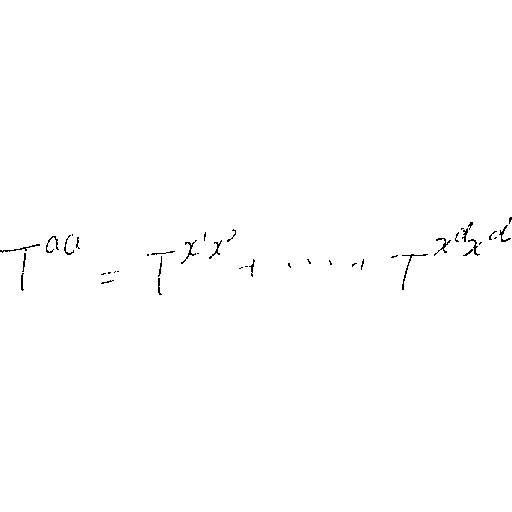 T^{aa} = T^{x^1 x^1} + ⋯ + T^{x^d x^d}